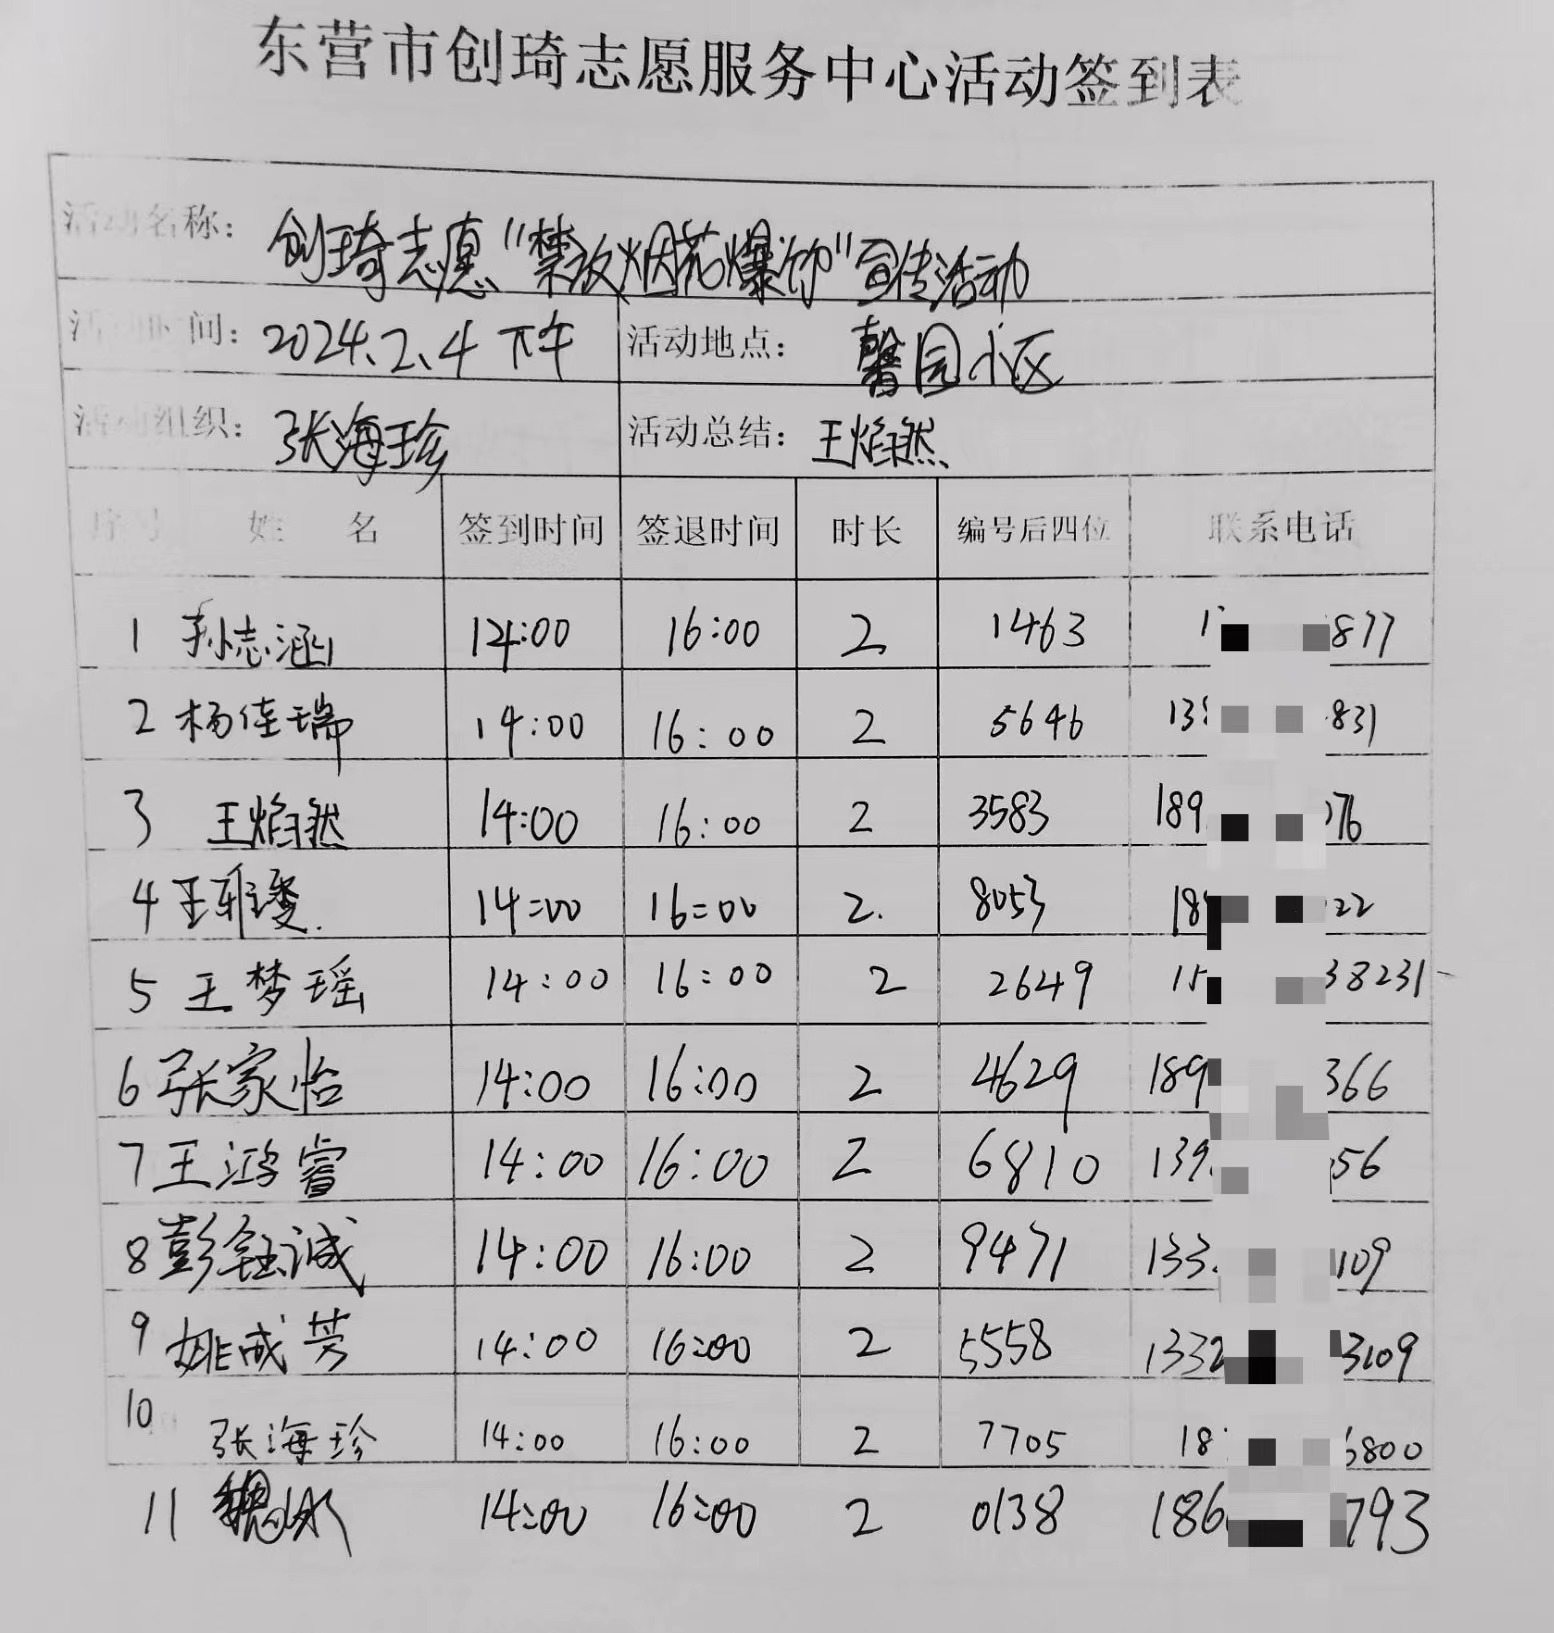 东营市创琦志愿服务中心活动签到表
活动名称： 创琦志愿“禁放烟花爆竹”宣传活动
活动时间： 2024.2.4 下午 活动地点： 馨园小区
活动组织： 张海珍 活动总结： 王焰然
序号 姓 名 签到时间 签退时间 时长 编号后四位 联系电话
1 孙志涵 14:00 16:00 2 1463 1 877
2 杨佳瑞 14:00 16:00 2 5646 13 831
3 王焰然 14:00 16:00 2 3583 189 76
4 14:00 16:00 2. 8053 18 22
5 王梦瑶 14:00 16:00 2 2649 15 38231
6 张家怡 14:00 16:00 2 4629 189 366
7 王鸿睿 14:00 16:00 2 6810 139 56
8 彭钰诚 14:00 16:00 2 9471 133 109
9 姚成芳 14:00 16:00 2 5558 1332 3109
10 张海珍 14:00 16:00 2 7705 18 6800
11 14:00 16:00 2 0138 186 793